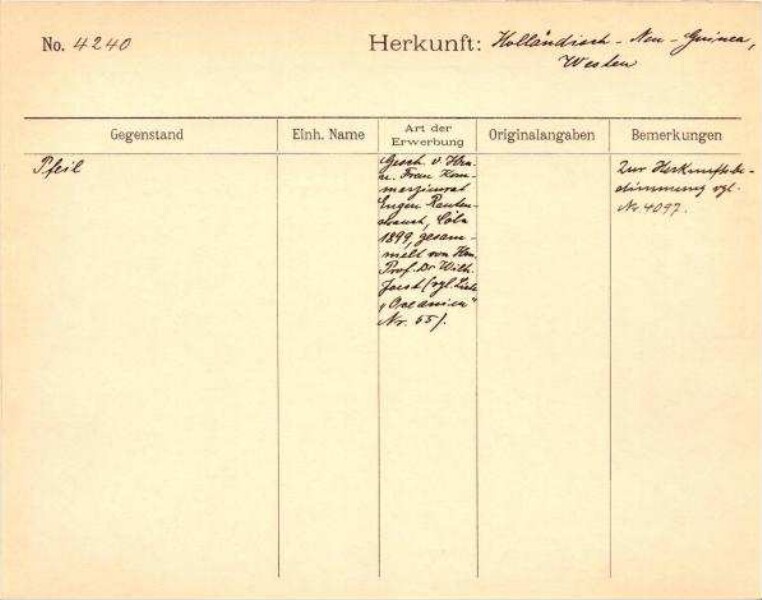 No. 4240
Herkunft: Holländisch-Neu-Guinea,
Westen
Gegenstand
Einh. Name
Art der
Erwerbung
Originalangaben
Bemerkungen
Pfeil
Gesch. v. Hrn.
u. Frau Kom-
merzienrat
Eugen Rauten-
strauch, Cöln
1899, gesam-
melt von Hrn.
Prof. Dr. Wilh.
Joest (vgl. Liste
„Oceanien"
Nr. 55).
Zur Herkunftsbe-
stimmung vgl.
Nr. 4097.